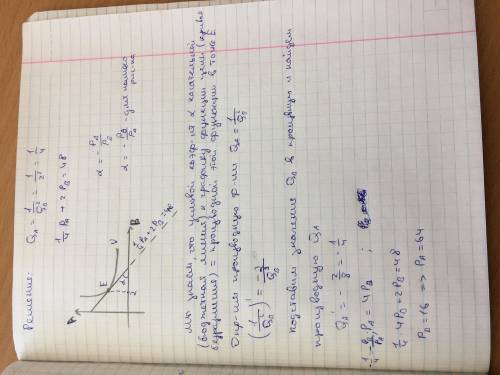 Решение:
Q_A = 1/Q_B² = 1/2² = 1/4
1/4 P_A + 2 P_B = 48
A
E
U
α
2
B
1/4 P_A + 2P_B = 48
α = - P_A/P_B
α = - P_B/P_A - для нашего рис-ка
Мы знаем, что угловой коэф-нт α касательной
(бюджетная линия) к графику функции цели (кривая
безразличия) = производной этой функции в точке E
Опр-им производную ф-ии Q_A = 1/Q_B²
(1/Q_B²)' = - 2/Q_B³
Подставим значение Q_B в производную и найдем
производную Q_A
Q_A' = - 2/8 = - 1/4
- 1/4 = - P_B/P_A; P_A = 4P_B ;
1/4 · 4P_B + 2P_B = 48
P_B = 16 => P_A = 64